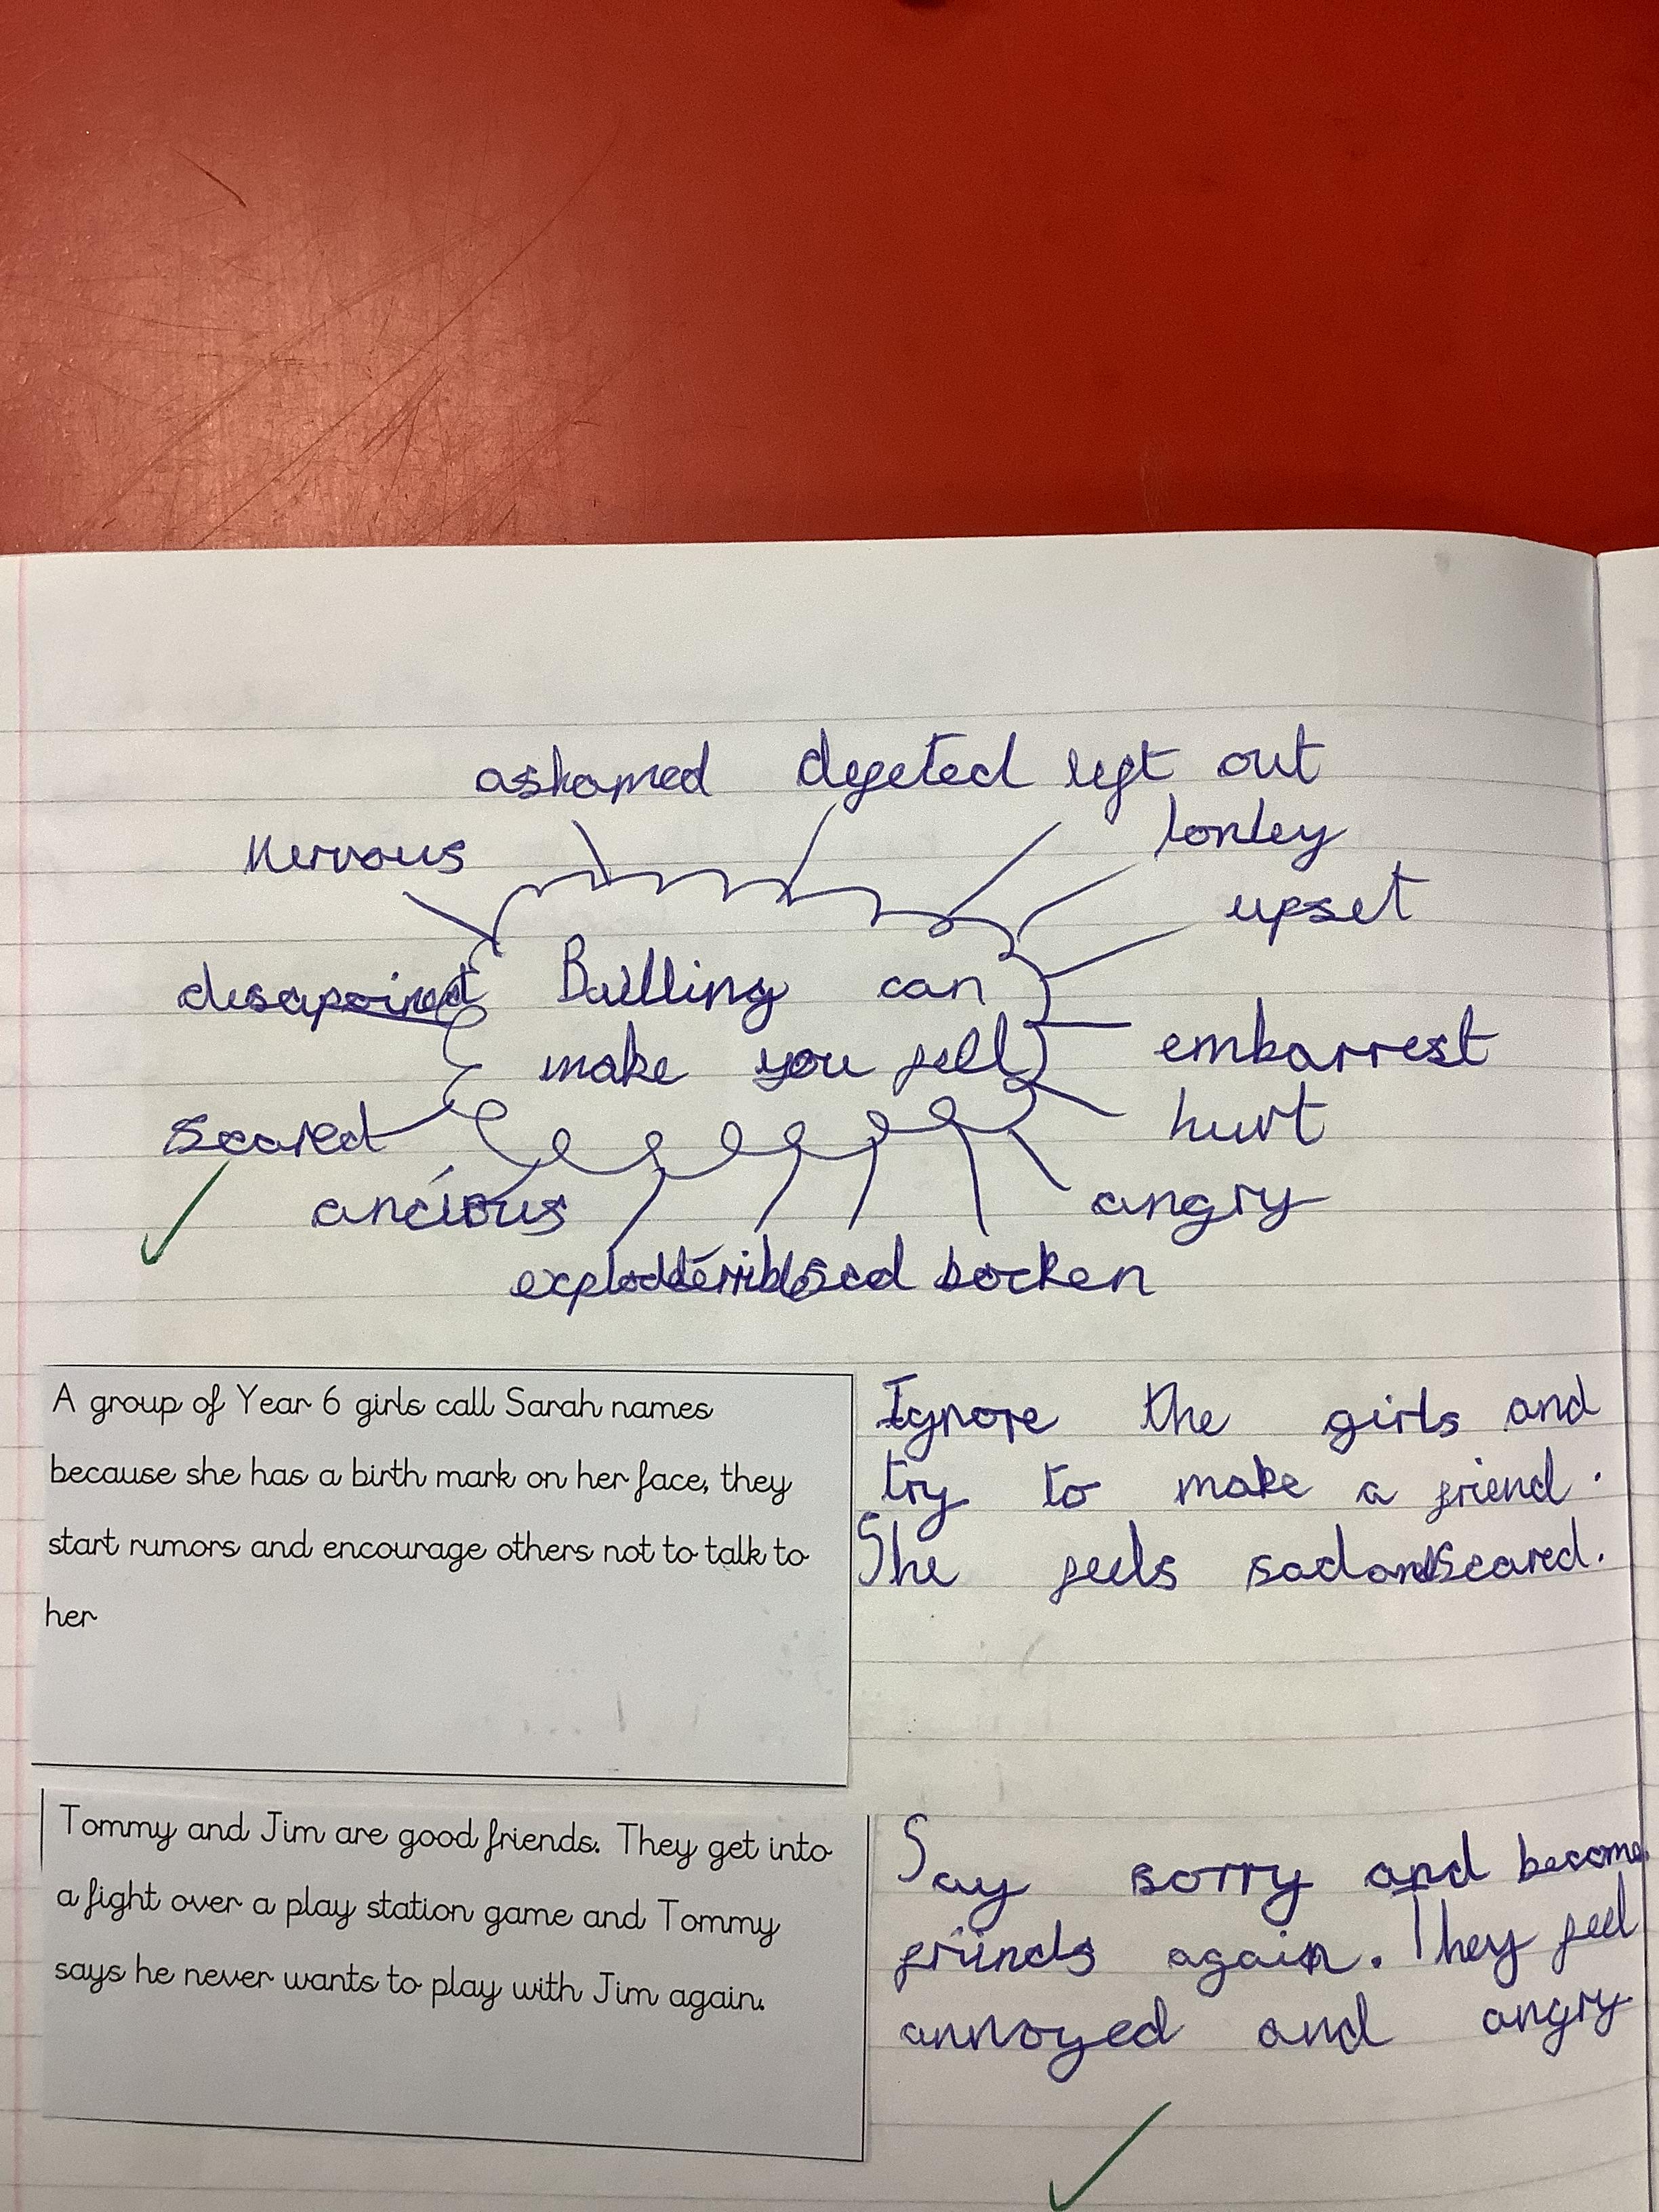 ashamed degeted left out
nervous lonley
upset
disapointed Bullling can
make you fell embarrest
scared hurt
ancious angry
explodd terrible sad bocken
A group of Year 6 girls call Sarah names
because she has a birth mark on her face, they
start rumors and encourage others not to talk to
her
Ignore the girls and
try to make a friend.
She feels sad and scared.
Tommy and Jim are good friends. They get into
a fight over a play station game and Tommy
says he never wants to play with Jim again.
Say sorry and become
friinds again. They feel
annoyed and angry